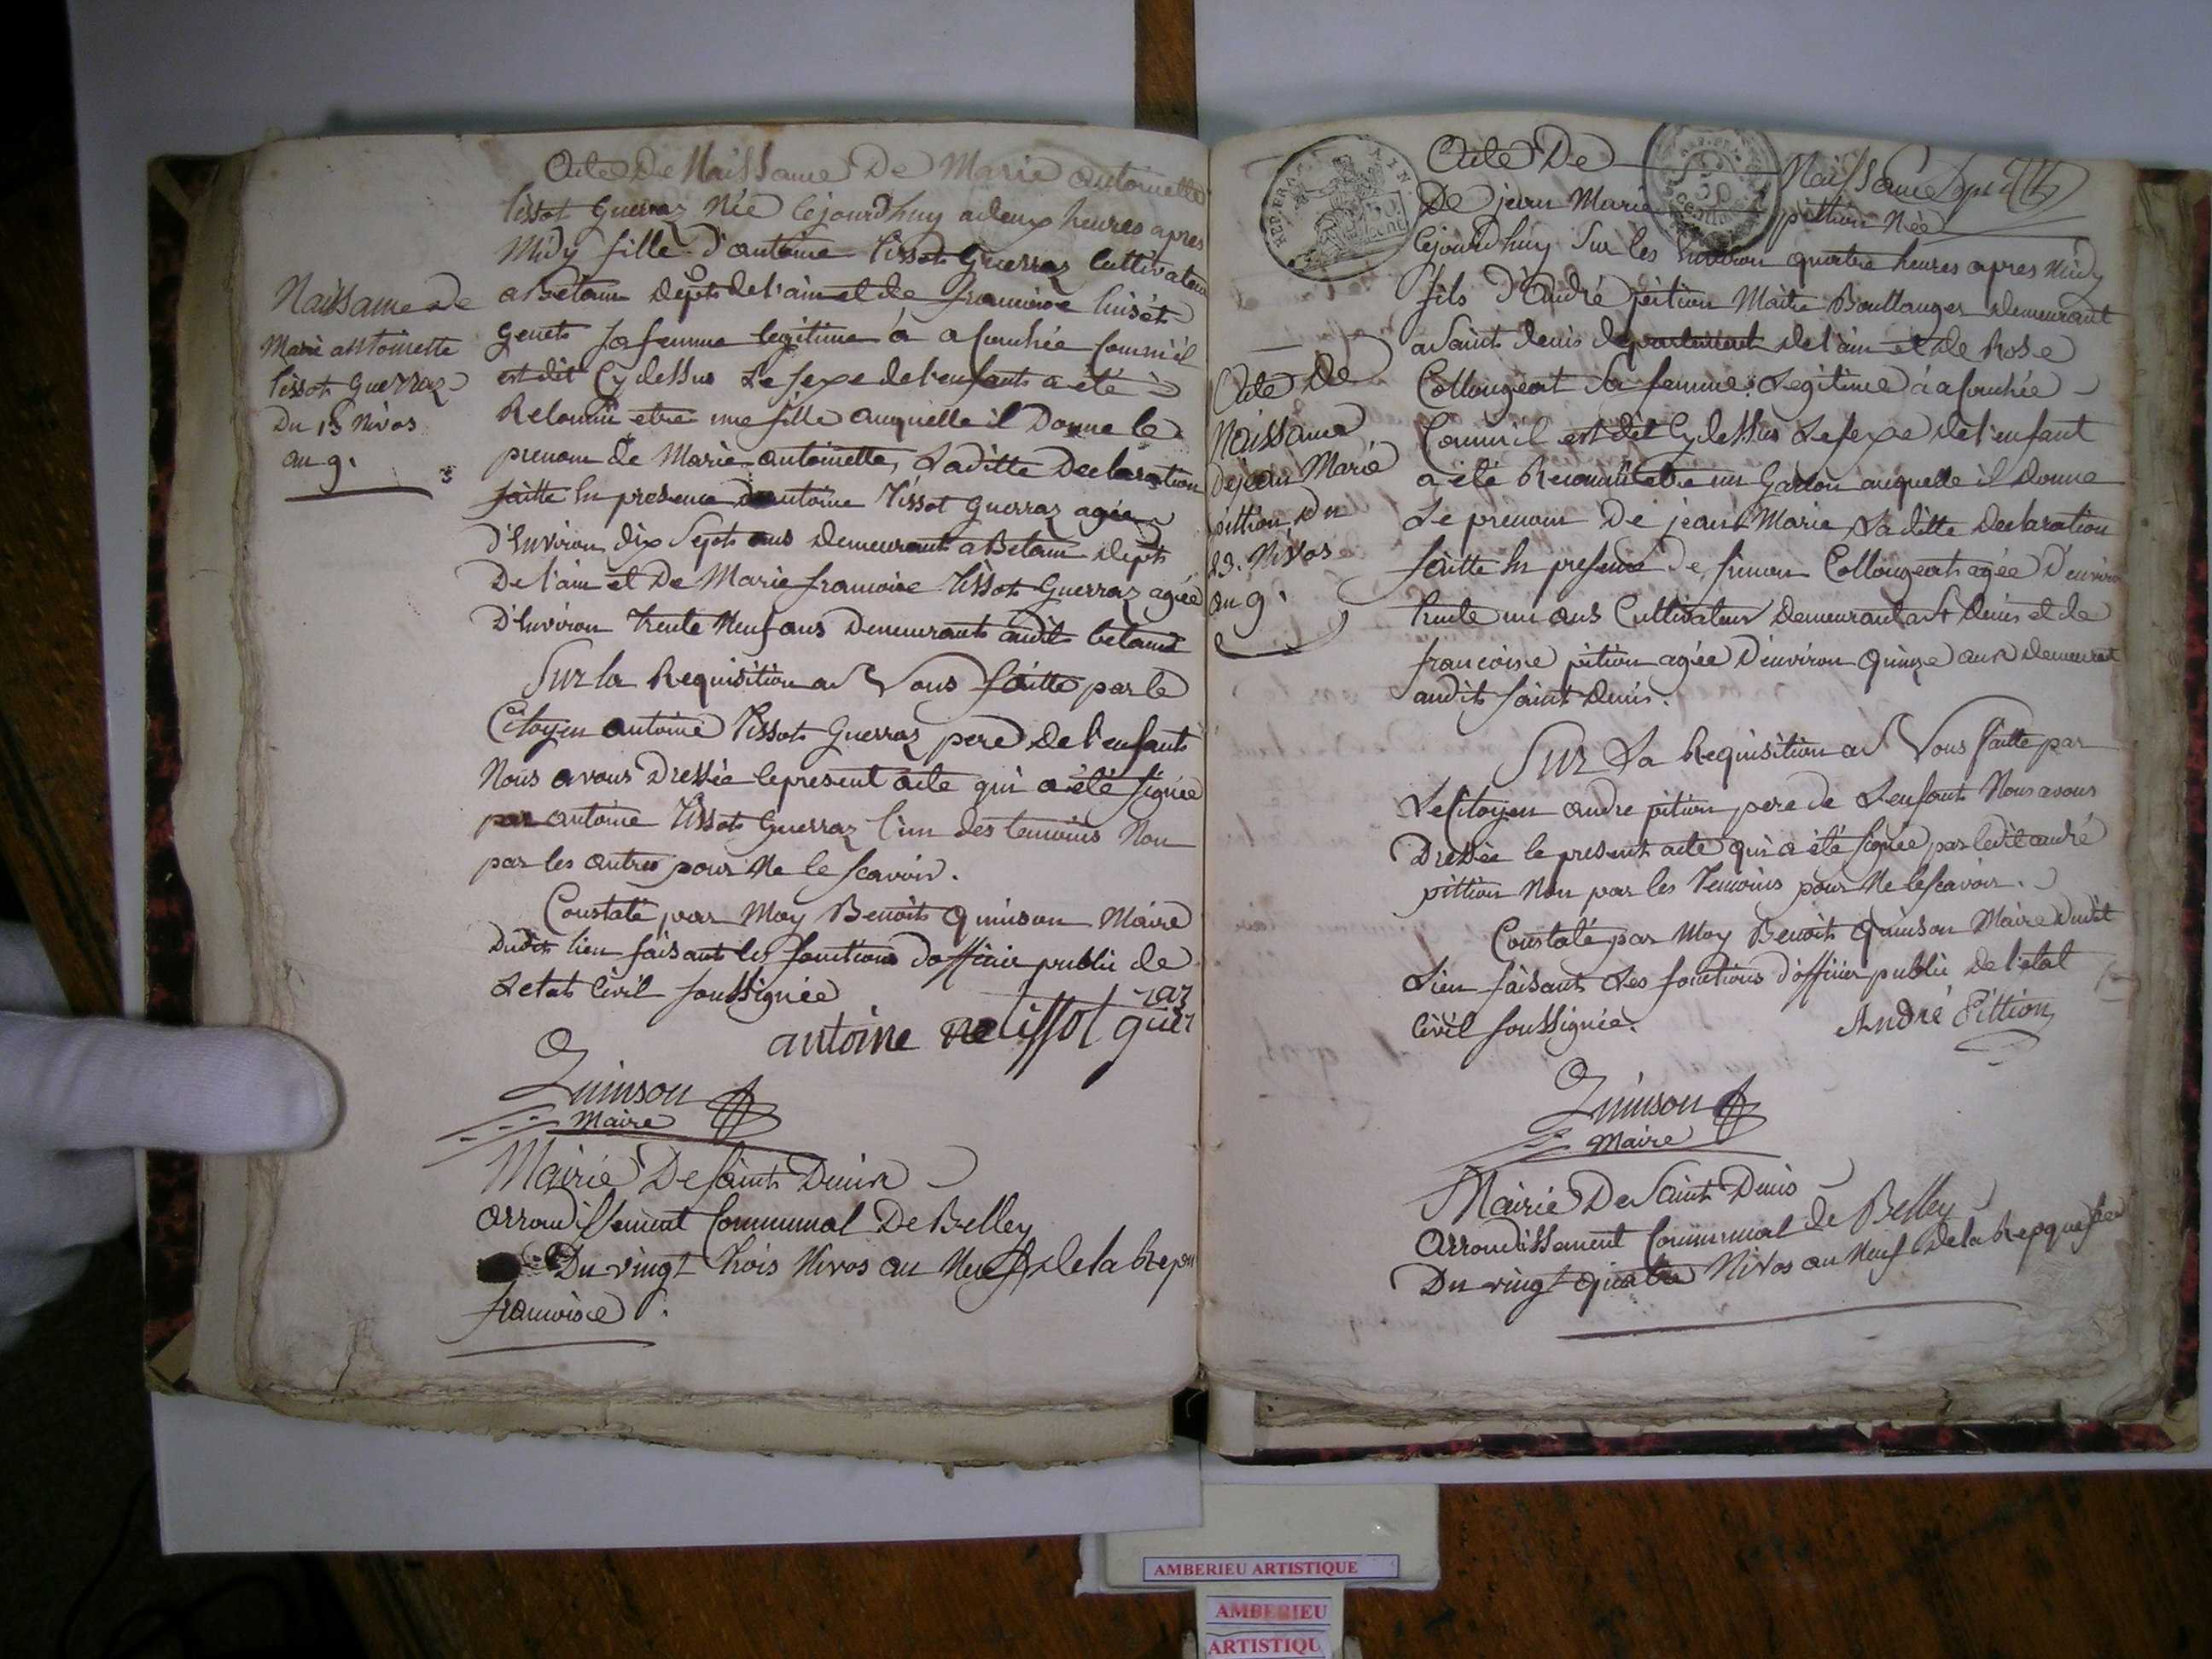 Acte De Naissance De Marie antoinette
tissot Guerraz Née Cejourdhuy a deux heures apres
Midy fille d'antoine tissot Guerraz Cultivateur
a Betam Dept de l'ain et de francoise
Genets sa femme legitime a acouchée comm'il
est dit Cy dessus Le sexe de l'enfant a été
Reconnu etre une fille auquelle il Donne le
prenom de Marie antoinette, Laditte Declaration
faitte En presence d'antoine Tissot Guerraz agée
d'Environ dix Sept ans demeurant a Betam Dept
De l'ain et De Marie francoise Tissot Guerraz agée
D'Environ trente Neuf ans Demeurants audit betam
Sur la Requisition a Nous faitte par le
Citoyen antoine Tissot Guerraz pere de l'enfant
Nous avons Dressée le present acte qui a été signée
par antoine Tissot Guerraz l'un des temoins Non
par les autres pour Ne le scavoir.
Constaté par Moy Benoit Quinson Maire
Dudit lieu faisant les fonctions d'officier public de
Letat Civil soussignée
raz
antoine tissot guer
Quinson
Maire
Mairie De saint Denis
Arrondissement Communal De Belley
Du vingt trois Nivos an Neuf de la Rep
francoise
Naissance De
Marie antoinette
tissot Guerraz
Du 15 Nivos
an 9.
Acte De Naissance
De jean Marie pittion Née
Cejourdhuy Sur les Environ quatre heures apres Midy
fils d'André pittion Maitre Boullanger demeurant
a Saint denis departement de l'ain et de Rose
Collongeat sa femme Legitime a acouchée
Comm'il est dit Cy dessus Le sexe de l'enfant
a été Reconnu etre un Garcon auquelle il donne
Le prenom De jean Marie, Laditte declaration
faitte En presence de simon Collongeat agée D'environ
trente un ans Cultivateur demeurant a St denis et de
francoise pittion agée D'environ quinze ans demeurant
audit saint denis.
Sur La Requisition a Nous faitte par
Le Citoyen andre pittion pere de L'enfant Nous avons
Dressée le present acte qui a été signée par ledit andré
pittion Non par les Temoins pour Ne le scavoir.
Constaté par Moy Benoit Quinson Maire dudit
Lieu faisant Les fonctions d'officier public de l'etat
Civil soussignée.
André Pittion
Quinson
Maire
Mairie De Saint Denis
Arrondissement Communal de Belley
Du vingt quatre Nivos an Neuf de la Repque
Acte De
Naissance
De jean Marie
pittion Du
23. Nivos
an 9.
REP. FRA.
50
centimes
AMBERIEU ARTISTIQUE
AMBERIEU
ARTISTIQU